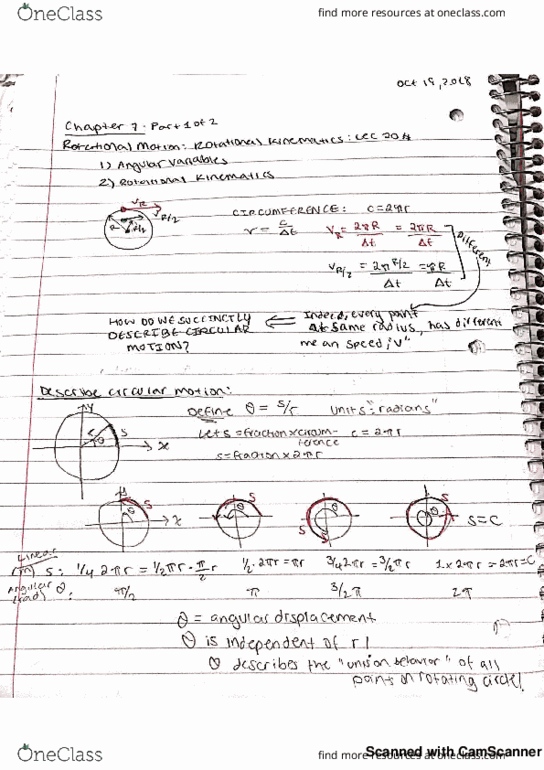 OneClass
find more resources at oneclass.com
Oct 19, 2018
Chapter 7 - Part 1 of 2
Rotational Motion: Rotational Kinematics: Lec 20A
1) Angular variables
2) Rotational Kinematics
V_R
V_R/2
R
CIRCUMFERENCE: c=2πr
v = C/Δt V_R = 2πR/Δt = 2πR/Δt
V_R/2 = 2πR/2/Δt = πR/Δt
Different
HOW DO WE SUCCINCTLY
DESCRIBE CIRCULAR
MOTION?
Indeed, every point
at same radius, has different
mean speed, "v"
Describe circular motion:
y
x
r
θ
s
Define θ = s/r Units "radians"
Let s = fraction x circumference c = 2πr
s = fraction x 2πr
s
x
s
θ
s
s
θ
s=c
Linear
(m) s: 1/4 2πr = 1/2πr = π/2 r 1/2 · 2πr = πr 3/4 2πr = 3/2πr 1 x 2πr = 2πr = C
Angular
(rad) θ: π/2 π 3/2π 2π
θ = angular displacement
θ is independent of r!
θ describes the "unison behavior" of all
points on rotating circle!
OneClass
find more resources at oneclass.com
Scanned with CamScanner